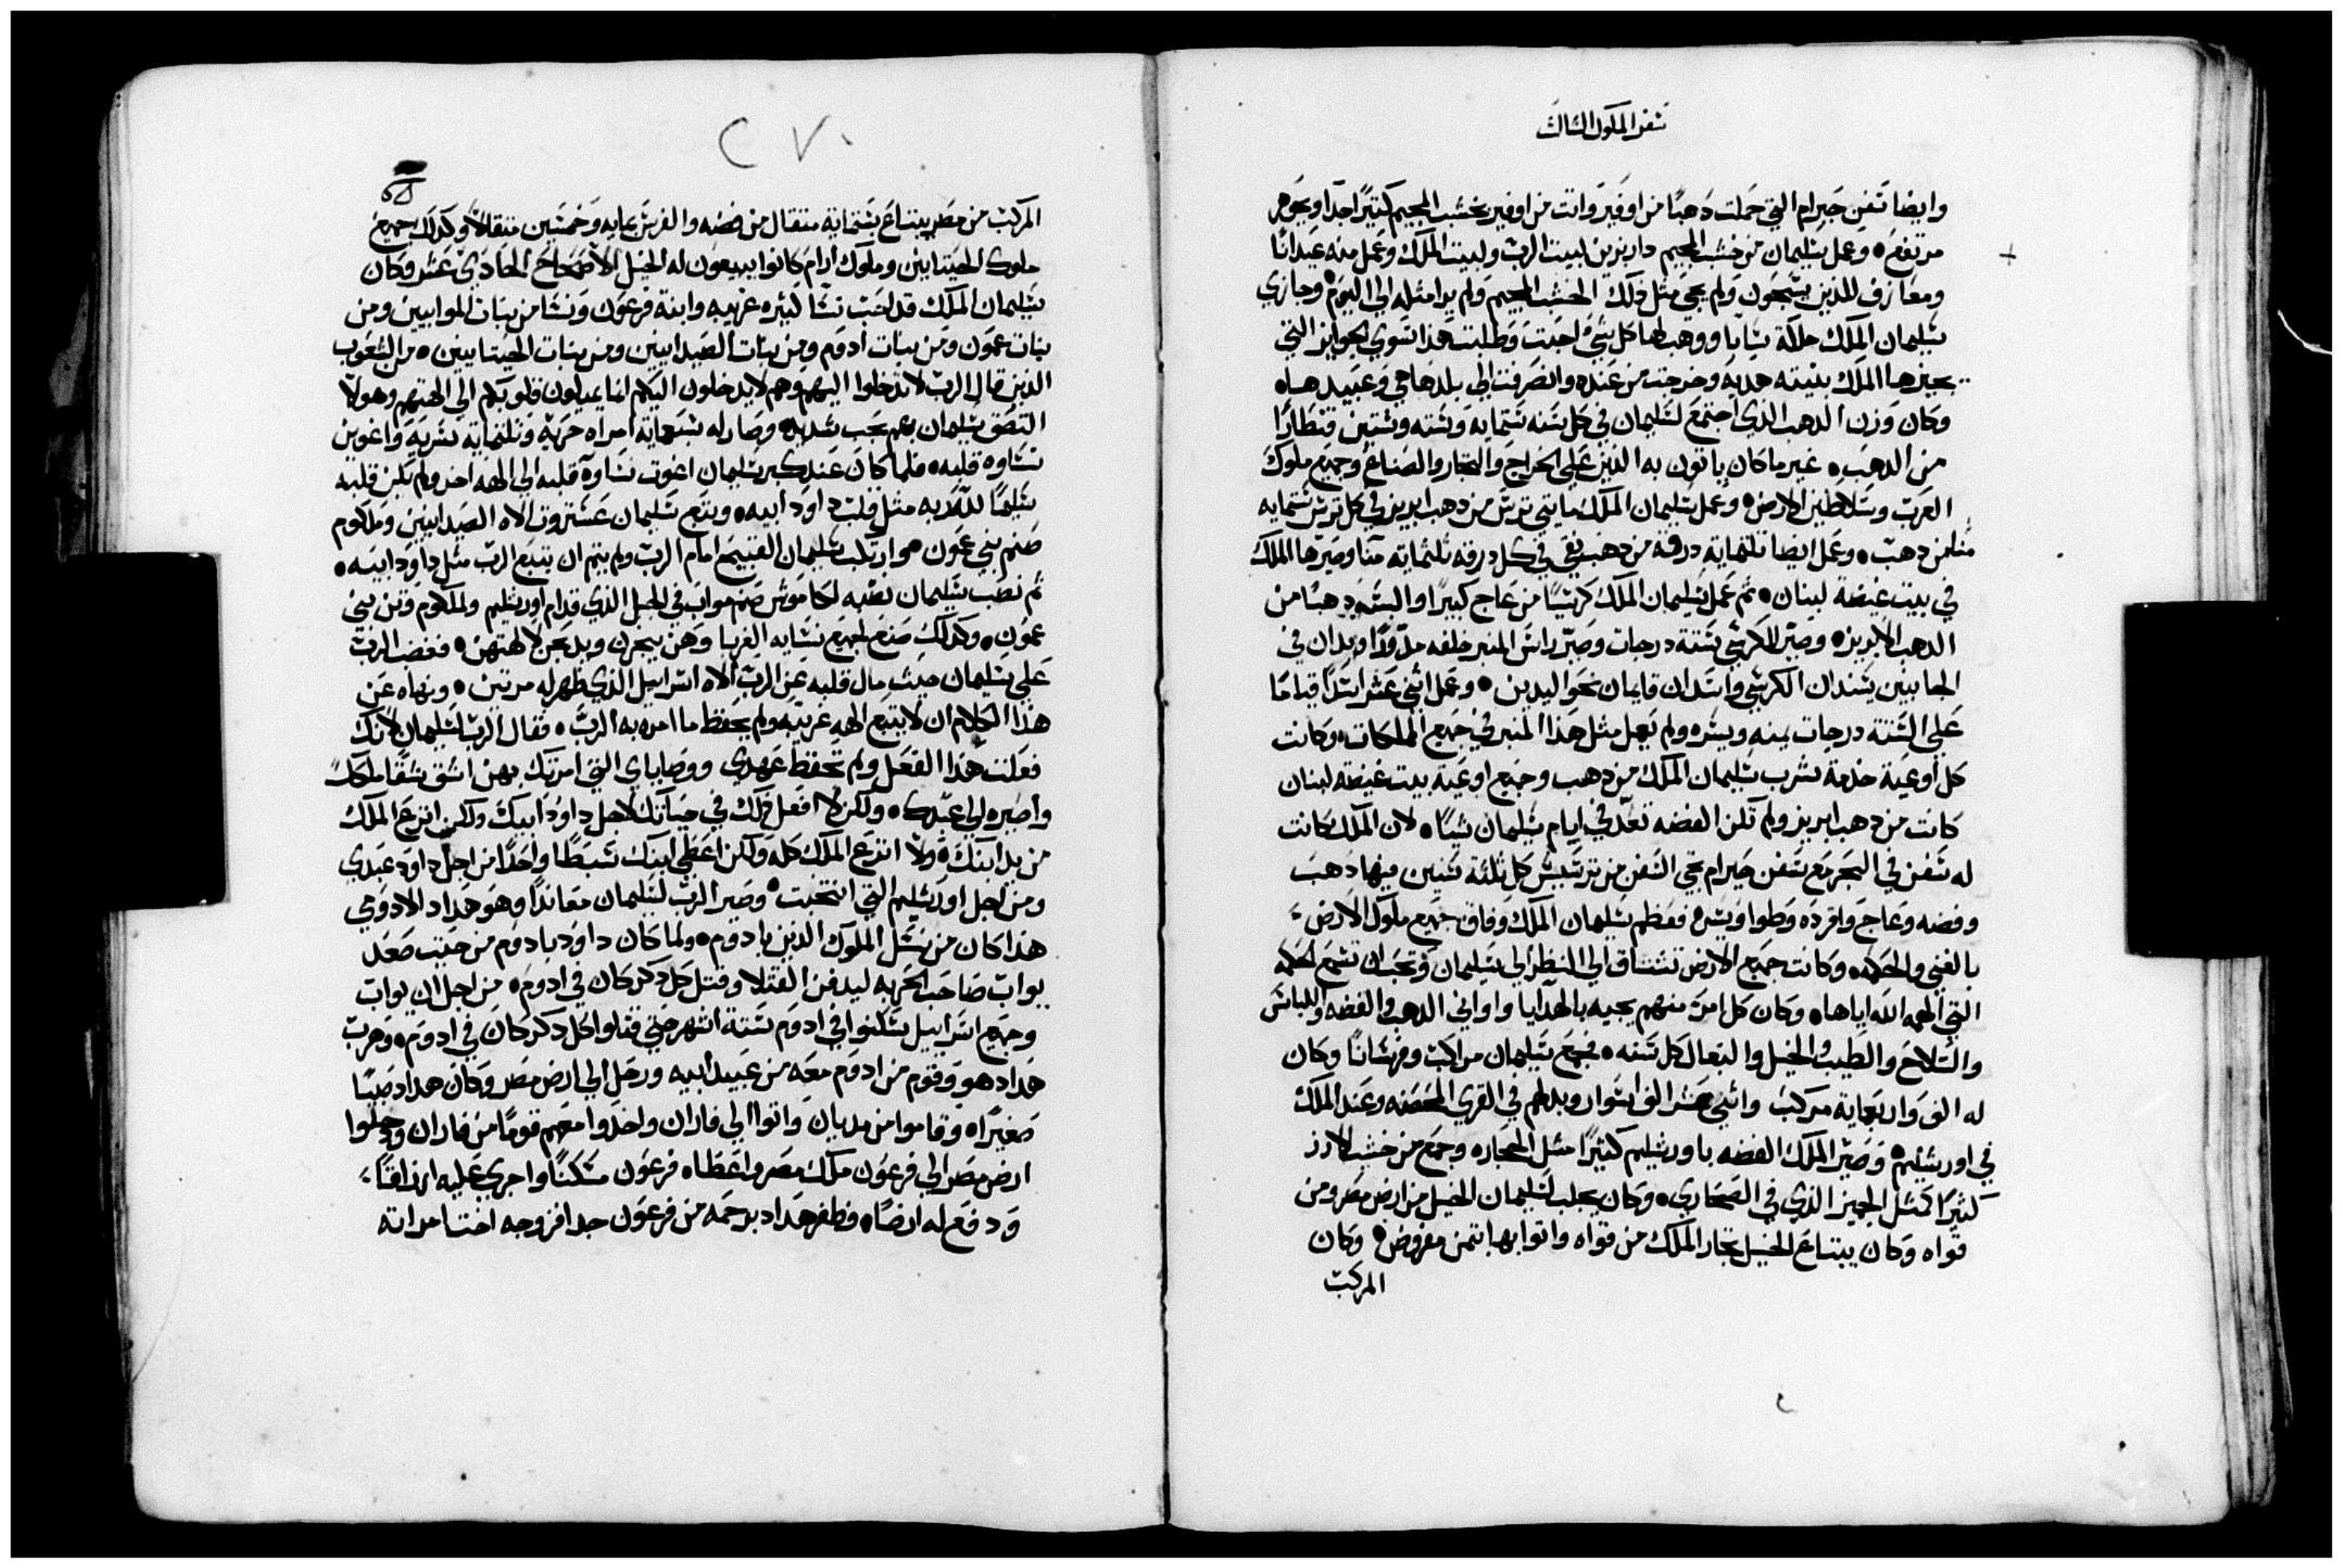 سفر الملوك الثالث
وايضا سفن حيرام التي حملت دهبًا من اوفير واتت من اوفير بخشب المجيم كتيرًا جدًا وجوهر
مرتفع ٥ وعمل سليمان من خشب المجيم درابزين لبيت الرب ولبيت الملك وعمل منه عيدانًا
ومعازف للذين يسبحون ولم يجي مثل ذلك الخشب المجيم ولم يرا مثله الي اليوم ٥ وجازي
سليمان الملك ملكة سابا ووهب لها كل شي احبت وطلبت هذا سوي الجوايز التي
يجيزها الملك بنيته هديه وخرجت من عنده وانصرفت الي بلدها هي وعبيدها ٥
وكان وزن الدهب الذي اجتمع لسليمان في كل سنه ستمايه وسته وستين قنطارًا
من الدهب ٥ غير ما كان ياتون به الذين علي الخراج والتجار والصناع وجميع ملوك
العرب وسلاطين الارض ٥ وعمل سليمان الملك مايتي ترس من دهب ابريز في كل ترس ستمايه
منا من دهب ٥ وعمل ايضا تلتمايه درقه من دهب نقي في كل درقه تلتمايه منا وصيرها الملك
في بيت غيضة لبنان ٥ تم عمل سليمان الملك كرسيًا من عاج كبيرًا والبسه دهبًا من
الدهب الابريز ٥ وصير للكرسي ستة درجات وصير راس المنبر خلفه مدورًا ويدان في
الجانبين يسندان الكرسي واسدان قايمان نحو اليدين ٥ وعمل اثني عشر اسدًا قيامًا
علي الستة درجات يمنه ويسره ولم يعمل مثل هذا المنبر في جميع المملكات ٥ وكانت
كل اوعية خدمة شرب سليمان الملك من دهب وجميع اوعية بيت غيضة لبنان
كانت من دهب ابريز ولم تكن الفضه تعد في ايام سليمان شيًا ٥ لان الملك كانت
له سفن في البحر مع سفن حيرام تجي السفن من ترسيس كل تلتة سنين فيها دهب
وفضه وعاج واقرده وطواويس ٥ فعظم سليمان الملك وفاق جميع ملوك الارض
بالغني والحكمه ٥ وكانت جميع الارض تشتاق الي النظر الي سليمان وتحب ان تسمع الحكمه
التي الهمه الله اياها ٥ وكان كل امر منهم يجيه بالهدايا واواني الدهب والفضه واللباس
والسلاح والطيب والخيل والبغال كل سنه ٥ فجمع سليمان مراكب وفرسانًا وكان
له الف واربعماية مركب واثني عشر الف اسوار وبدلهم في القري المحصنه وعند الملك
في اورشليم ٥ وصير الملك الفضه باورشليم كثيرًا مثل الحجاره وجمع من خشب الارز
كثيرًا كمثل الجميز الذي في الصحاري ٥ وكان يجلب لسليمان الخيل من ارض مصر ومن
قواه وكان يبتاع الخيل تجار الملك من قواه واتوا بها بتمن مفروض ٥ وكان
المركب
٢٧٠
المركب من مصر يبتاع بستمايه متقال من فضه والفرس بمايه وخمسين متقالًا وكذلك جميع
ملوك الحيتانيين وملوك ارام كانوا يبيعون له الخيل الاصحاح الحادي عشر وكان
سليمان الملك قد احب نسًا كثيره غريبه وابنة فرعون ونسًا من بنات الموابيين ومن
بنات عمون ومن بنات ادوم ومن بنات الصيدانيين ومن بنات الحيتانيين ٥ من الشعوب
الذين قال الرب لا تدخلوا اليهم وهم لا يدخلون اليكم لئا يميلون قلوبكم الي الهتهم وهولا
التصق سليمان بهم بحب شديد ٥ وصار له سبعماية امراه حره وتلتماية سريه واغوين
نساوه قلبه ٥ فلما كان عند كبر سليمان اغوت نساوه قلبه الي الهه اخر ولم يكن قلبه
سليمًا لله ربه مثل قلب داود ابيه ٥ وتبع سليمان عشتروت الاه الصيدانيين وملكوم
صنم بني عمون ٥ وارتكب سليمان القبيح امام الرب ولم يتم ان يتبع الرب مثل داود ابيه ٥
تم نصب سليمان نصبه لكاموش صنم مواب في الجبل الذي قدام اورشليم ولملكوم وتن بني
عمون ٥ وكذلك صنع لجميع نسايه الغربا وهن يبخرن ويدبحن لالهتهن ٥ فغضب الرب
علي سليمان حيث مال قلبه عن الرب الاه اسراييل الذي ظهر له مرتين ٥ ونهاه عن
هذا الكلام ان لا يتبع الهه غريبه ولم يحفظ ما امره به الرب ٥ فقال الرب لسليمان لانك
فعلت هذا الفعل ولم تحفظ عهدي ووصاياي التي امرتك بهن اشق شقًا ملكك
واصيره الي عبدك ٥ ولكن لا افعل ذلك في حياتك لاجل داود ابيك ولكن انزع الملك
من يد ابنك ٥ ولا انزع الملك كله ولكن اعطي ابنك سبطًا واحدًا من اجل داود عبدي
ومن اجل اورشليم التي انتخبت ٥ وصير الرب لسليمان معاندًا وهو هداد الادومي
هذا كان من نسل الملوك الذين بادوم ٥ ولما كان داود بادوم من حيت صعد
يواب صاحب الحربه ليدفن القتلا وقتل كل دكر كان في ادوم ٥ من اجل ان يواب
وجميع اسراييل سكنوا في ادوم ستة اشهر حتي قتلوا كل دكر كان في ادوم ٥ وهرب
هداد هو وقوم من ادوم معه من عبيد ابيه ورحل الي ارض مصر وكان هداد صبيًا
صغيرًا ٥ وقاموا من مديان واتوا الي فاران واخدوا معهم قومًا من فاران ودخلوا
ارض مصر الي فرعون ملك مصر واعطاه فرعون مسكنًا واجري عليه ارزاقًا
ودفع له ارضًا ٥ فظفر هداد برحمه من فرعون جدا فزوجه اخت امراته